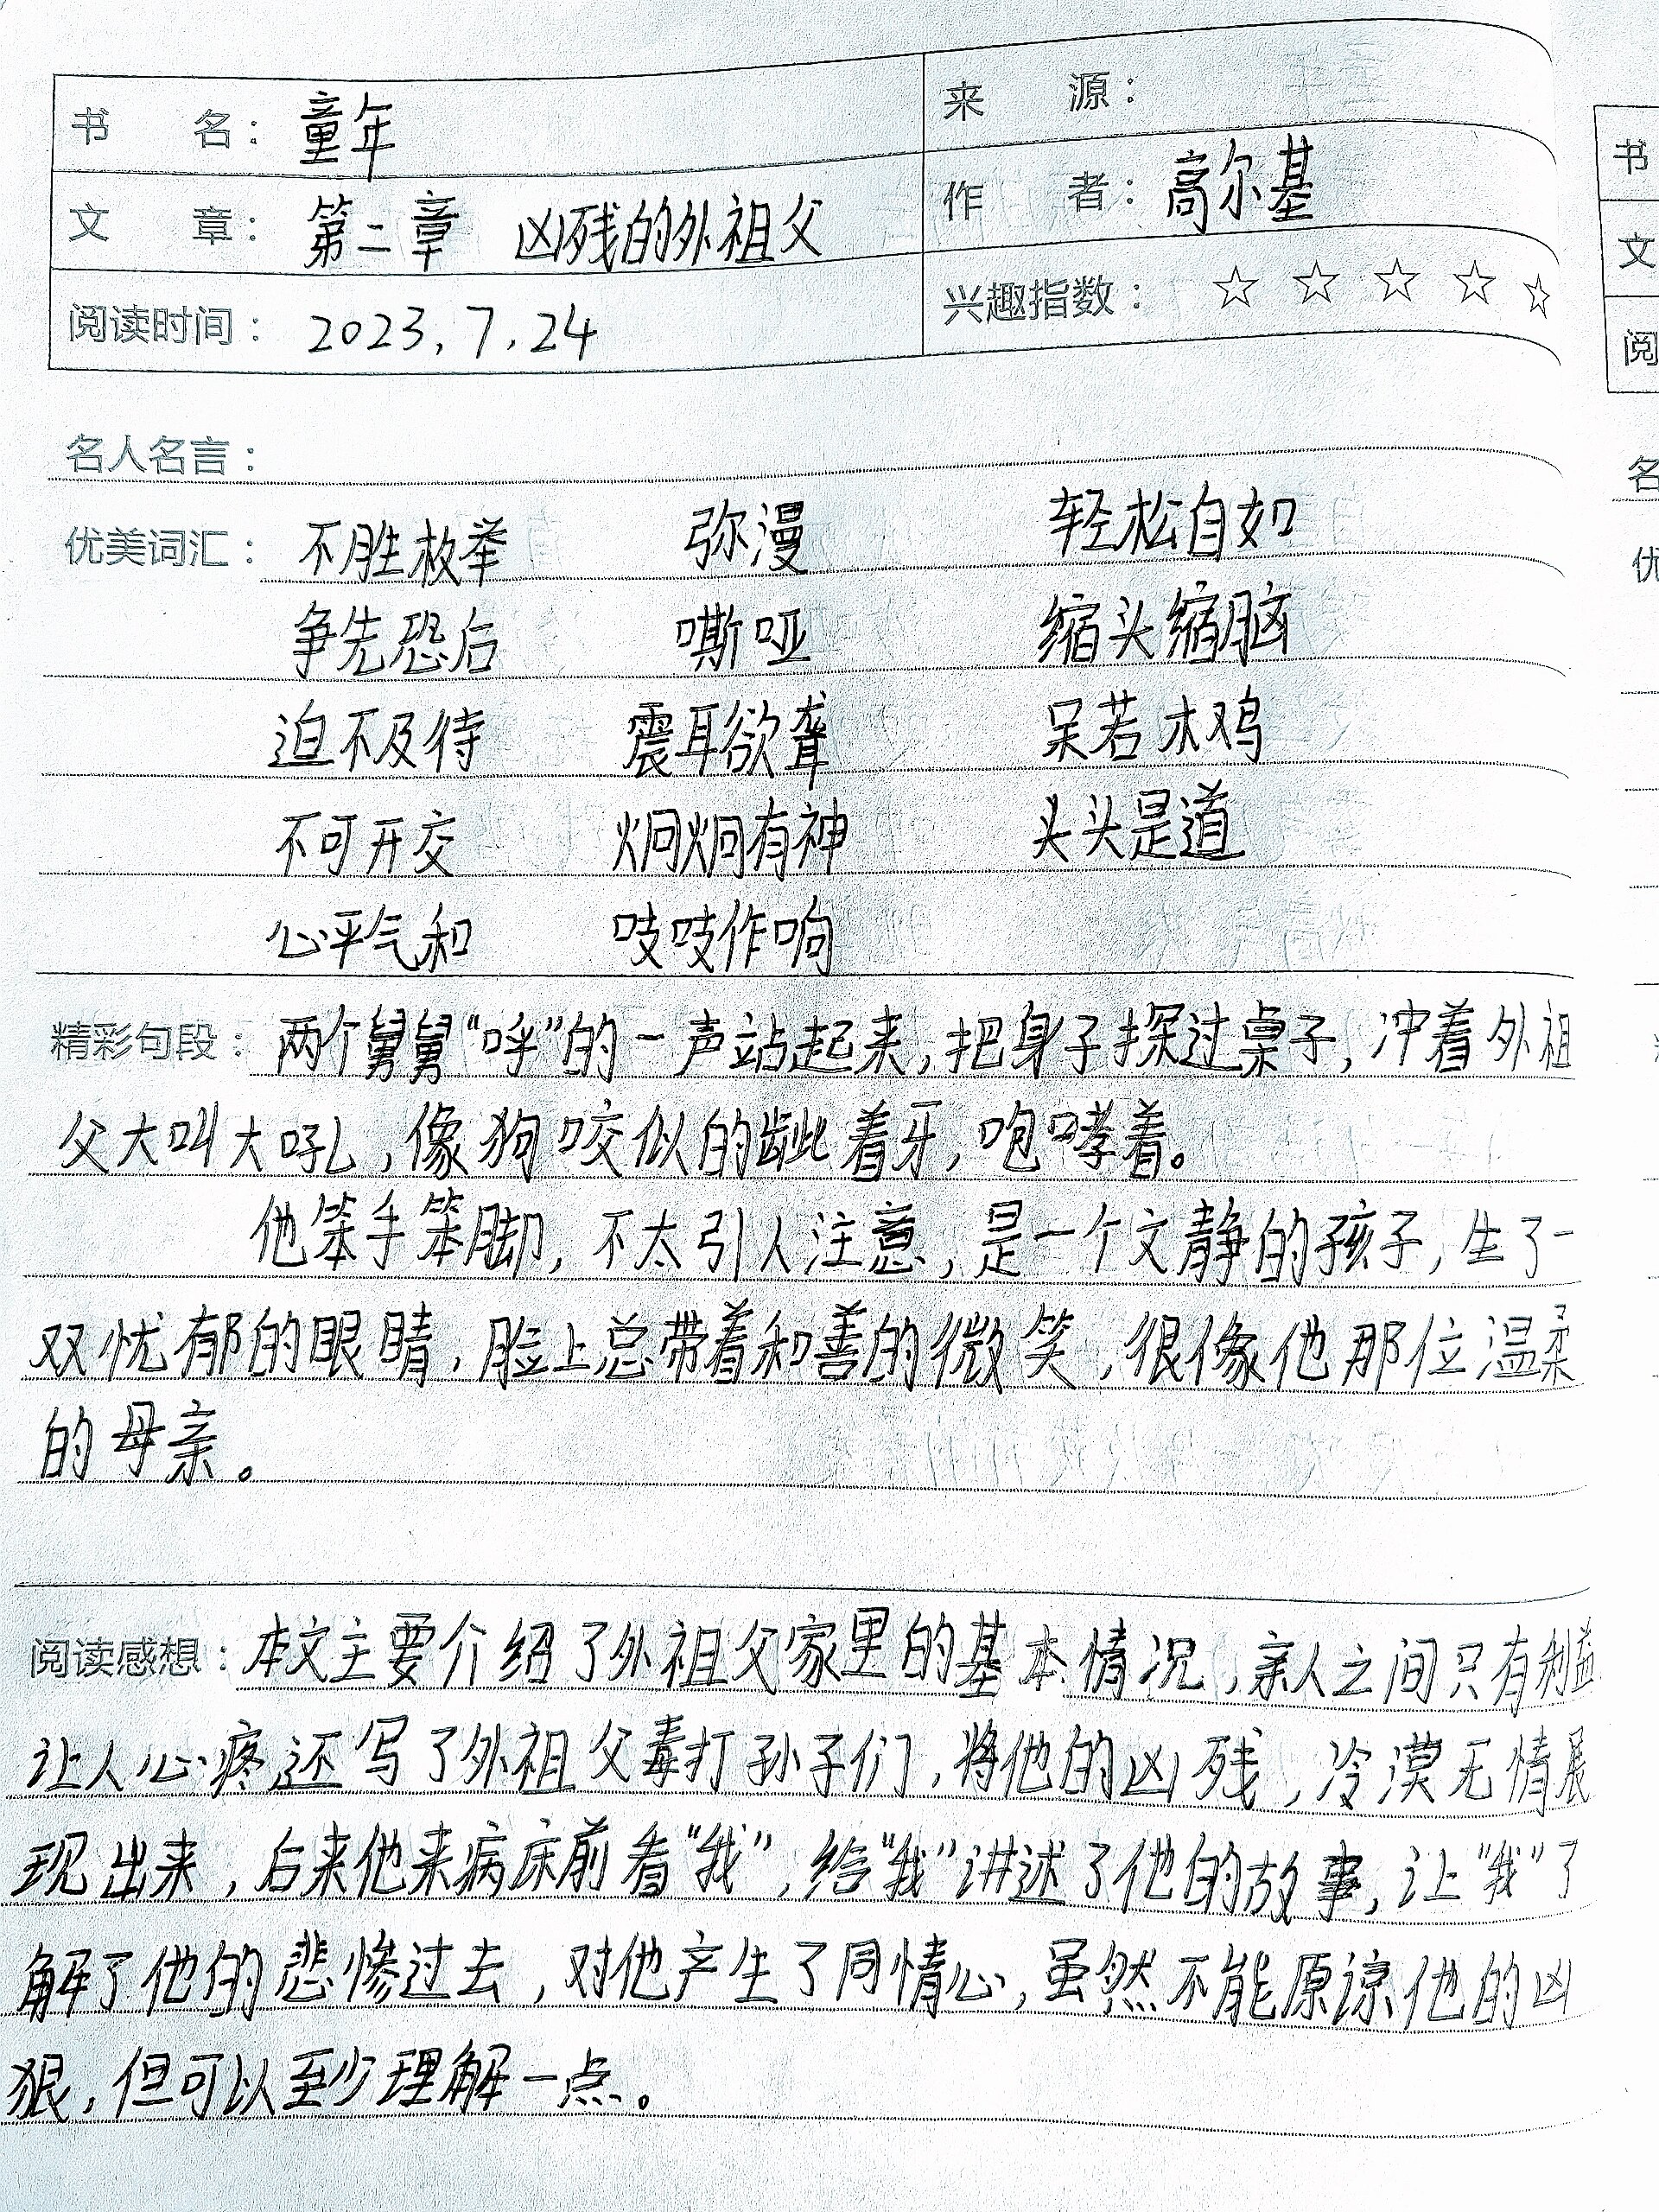 书 名：童年 来 源：
文 章：第二章 凶残的外祖父 作 者：高尔基
阅读时间：2023.7.24 兴趣指数：☆ ☆ ☆ ☆ ☆
名人名言：
优美词汇：不胜枚举 弥漫 轻松自如
争先恐后 嘶哑 缩头缩脑
迫不及待 震耳欲聋 呆若木鸡
不可开交 炯炯有神 头头是道
心平气和 吱吱作响
精彩句段：两个舅舅“呼”的一声站起来，把身子探过桌子，冲着外祖
父大叫大吼，像狗咬似的龇着牙，咆哮着。
他笨手笨脚，不太引人注意，是一个文静的孩子，生了一
双忧郁的眼睛，脸上总带着和善的微笑，很像他那位温柔
的母亲。
阅读感想：本文主要介绍了外祖父家里的基本情况，亲人之间只有利益
让人心疼还写了外祖父毒打孙子们，将他的凶残，冷漠无情展
现出来，后来他来病床前看“我”，给“我”讲述了他的故事，让“我”了
解了他的悲惨过去，对他产生了同情心，虽然不能原谅他的凶
狠，但可以至少理解一点。
书
文
阅
名
优